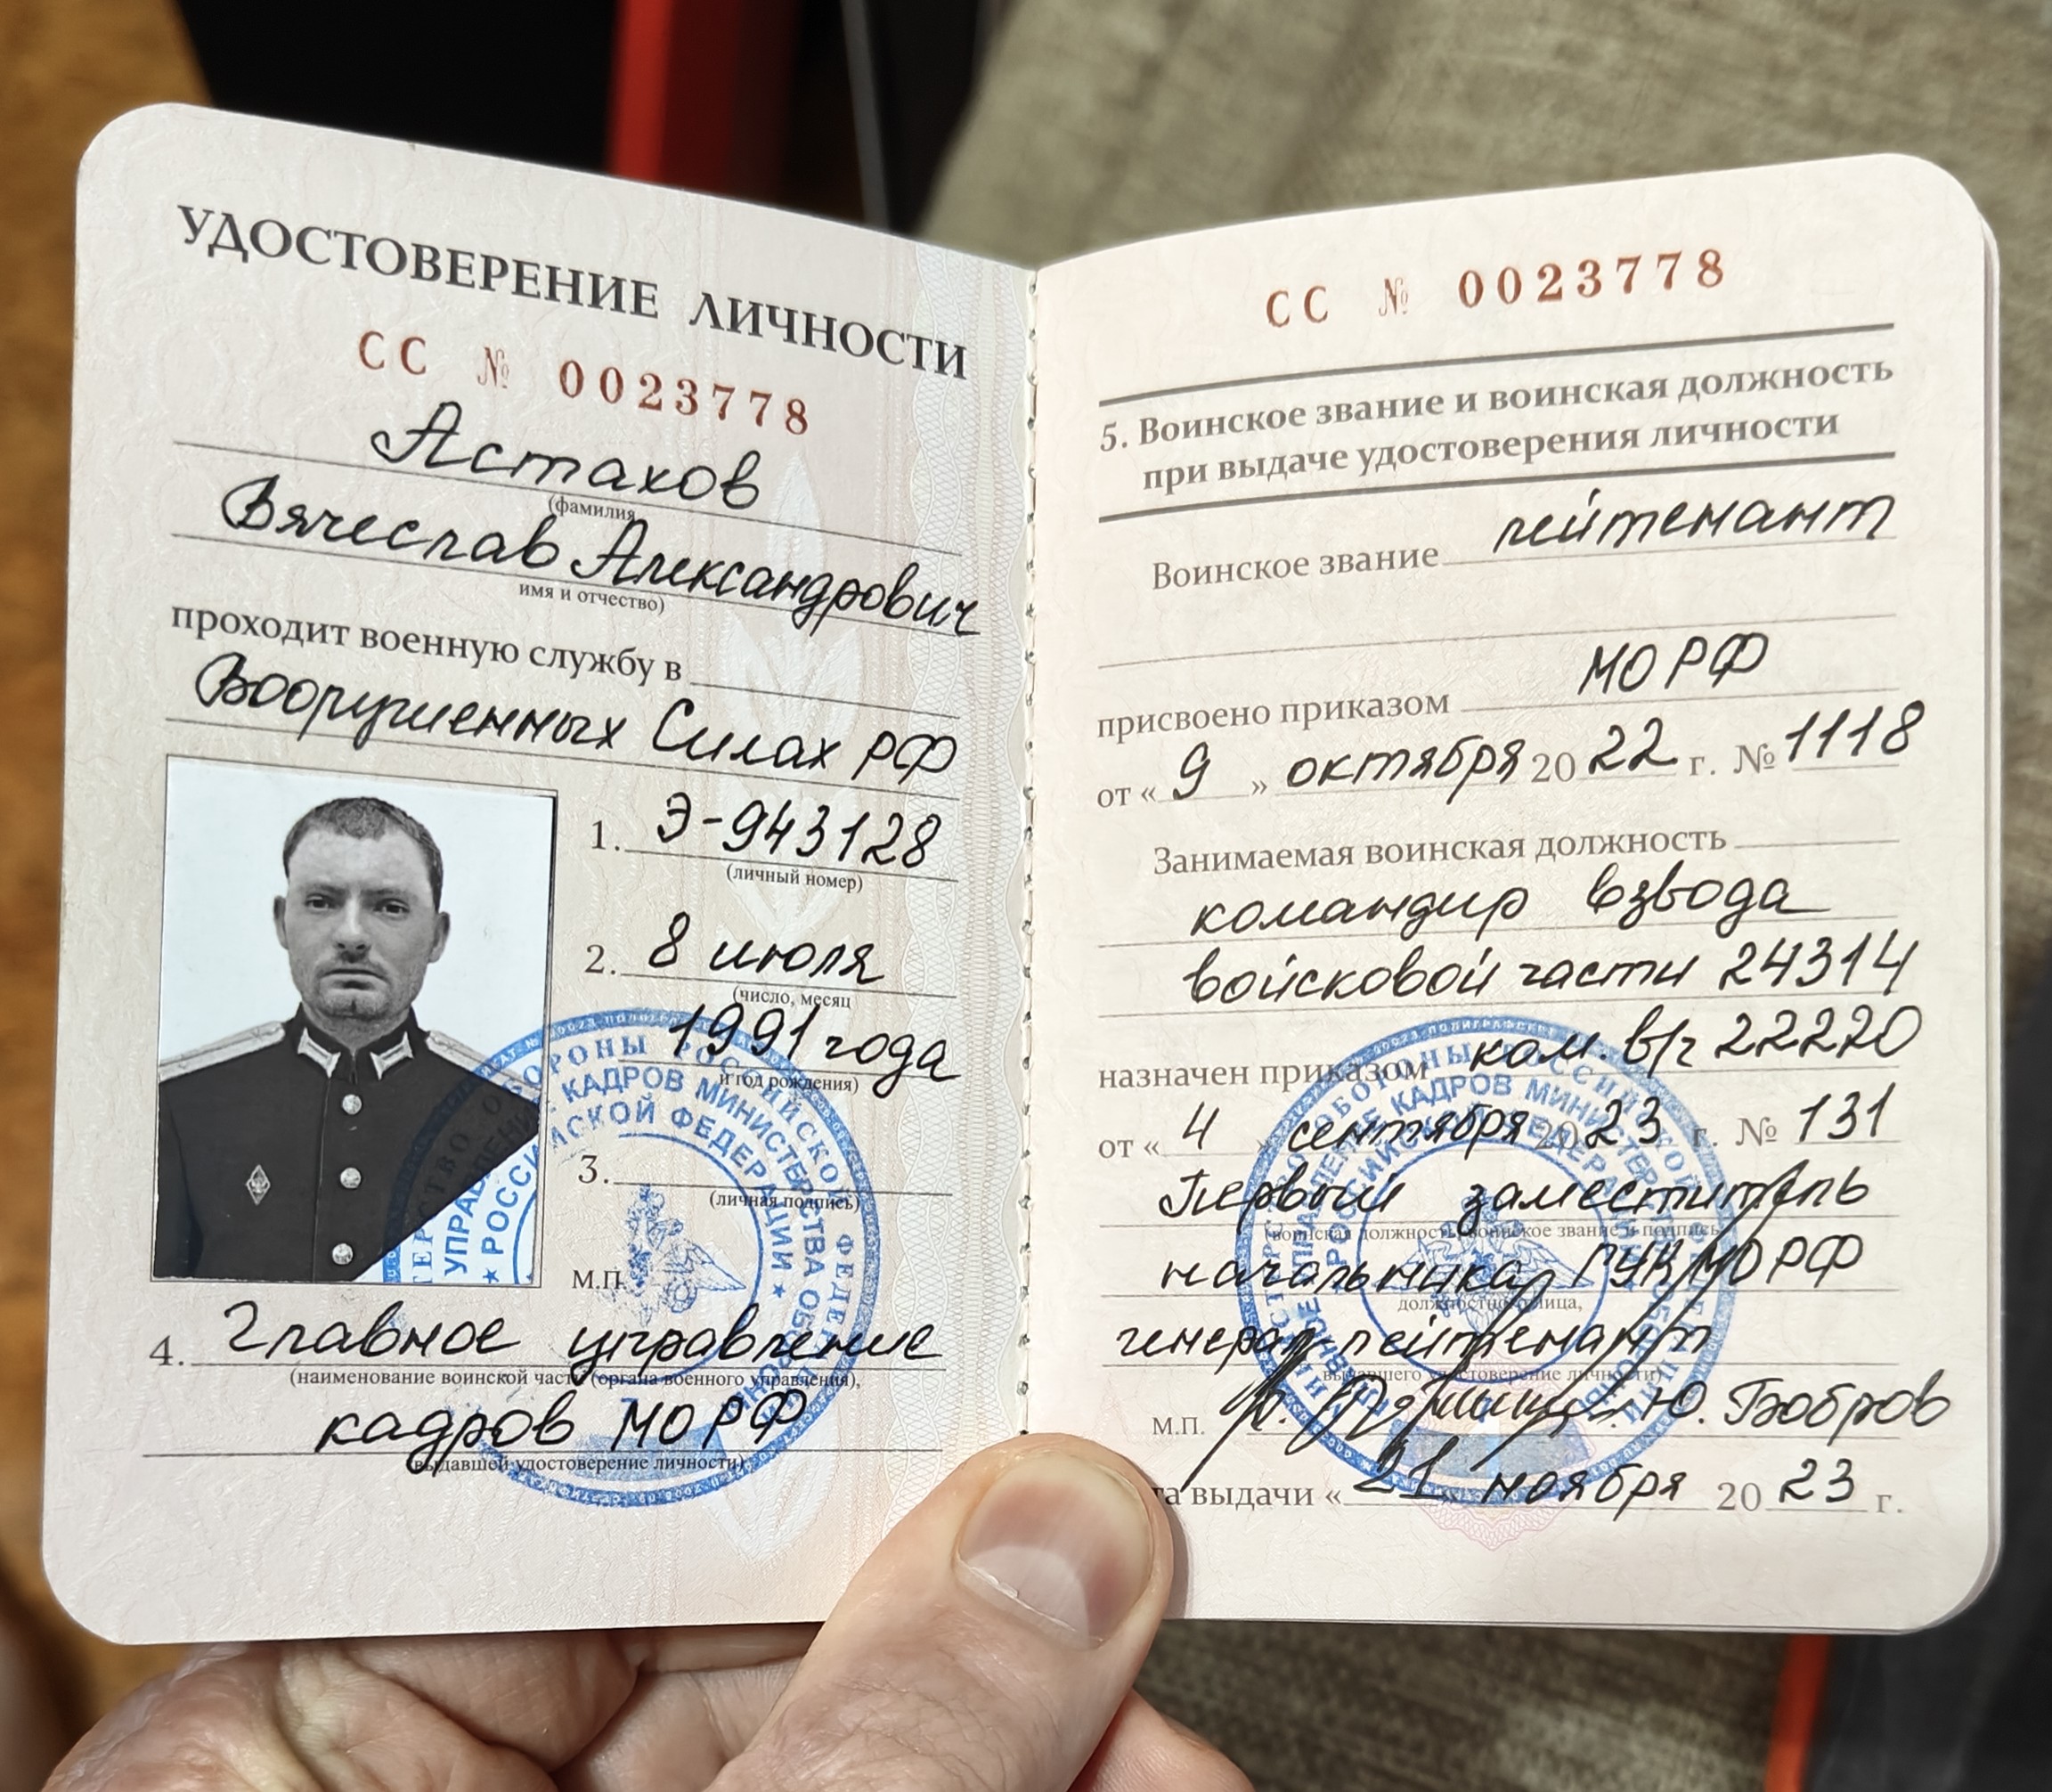 УДОСТОВЕРЕНИЕ ЛИЧНОСТИ
СС № 0023778
Астахов
(фамилия
Вячеслав Александрович
имя и отчество)
проходит военную службу в
Вооруженных Силах РФ
1. Э-943128
(личный номер)
2. 8 июля
(число, месяц
1991 года
и год рождения)
3.
(личная подпись)
М.П.
4. Главное управление
(наименование воинской части (органа военного управления),
кадров МО РФ
выдавшей удостоверение личности)
СС № 0023778
5. Воинское звание и воинская должность
при выдаче удостоверения личности
Воинское звание лейтенант
присвоено приказом МО РФ
от « 9 » октября 20 22 г. № 1118
Занимаемая воинская должность
командир взвода
войсковой части 24314
назначен приказом ком. в/ч 22220
от « 4 » сентября 20 23 г. № 131
Первый заместитель
(воинская должность, воинское звание и подпись
начальника ГУК МО РФ
должностного лица,
генерал-лейтенант
выдавшего удостоверение личности)
М.П. Ю. Бобров
та выдачи « 21 » ноября 20 23 г.